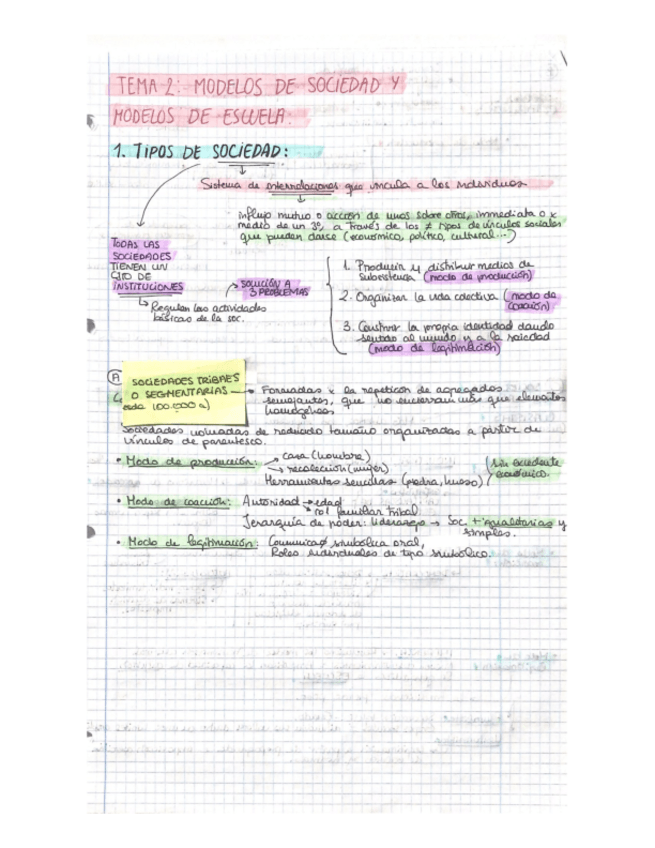 TEMA 2: MODELOS DE SOCIEDAD Y
MODELOS DE ESCUELA:
1. TIPOS DE SOCIEDAD:
Sistema de interrelaciones que vincula a los individuos
influjo mutuo o acción de unos sobre otros, inmediata o x
medio de un 3º, a través de los ≠ tipos de vínculos sociales
que pueden darse (económico, político, cultural...)
TODAS LAS
SOCIEDADES
TIENEN UN
CJTO DE
INSTITUCIONES
Regulan las actividades
básicas de la soc.
SOLUCIÓN A
3 PROBLEMAS
1. Producir y distribuir medios de
subsistencia (modo de producción)
2. Organizar la vida colectiva (modo de
coacción)
3. Construir la propia identidad dando
sentido al mundo y a la sociedad
(modo de legitimación)
A
SOCIEDADES TRIBALES
O SEGMENTARIAS
100.000 a)
Formadas x la repetición de agregados
semejantes, que no encierran más que elementos
homogéneos
Sociedades nómadas de reducido tamaño organizadas a partir de
vínculos de parentesco.
• Modo de producción: caza (hombre)
recolección (mujer)
Herramientas sencillas (piedra, hueso)
Sin excedente
económico.
• Modo de coacción: Autoridad → edad
rol familiar tribal
Jerarquía de poder: liderazgo → Soc. + igualitarias y
simples.
• Modo de legitimación: Comunicaº simbólica oral,
Roles individuales de tipo simbólico.